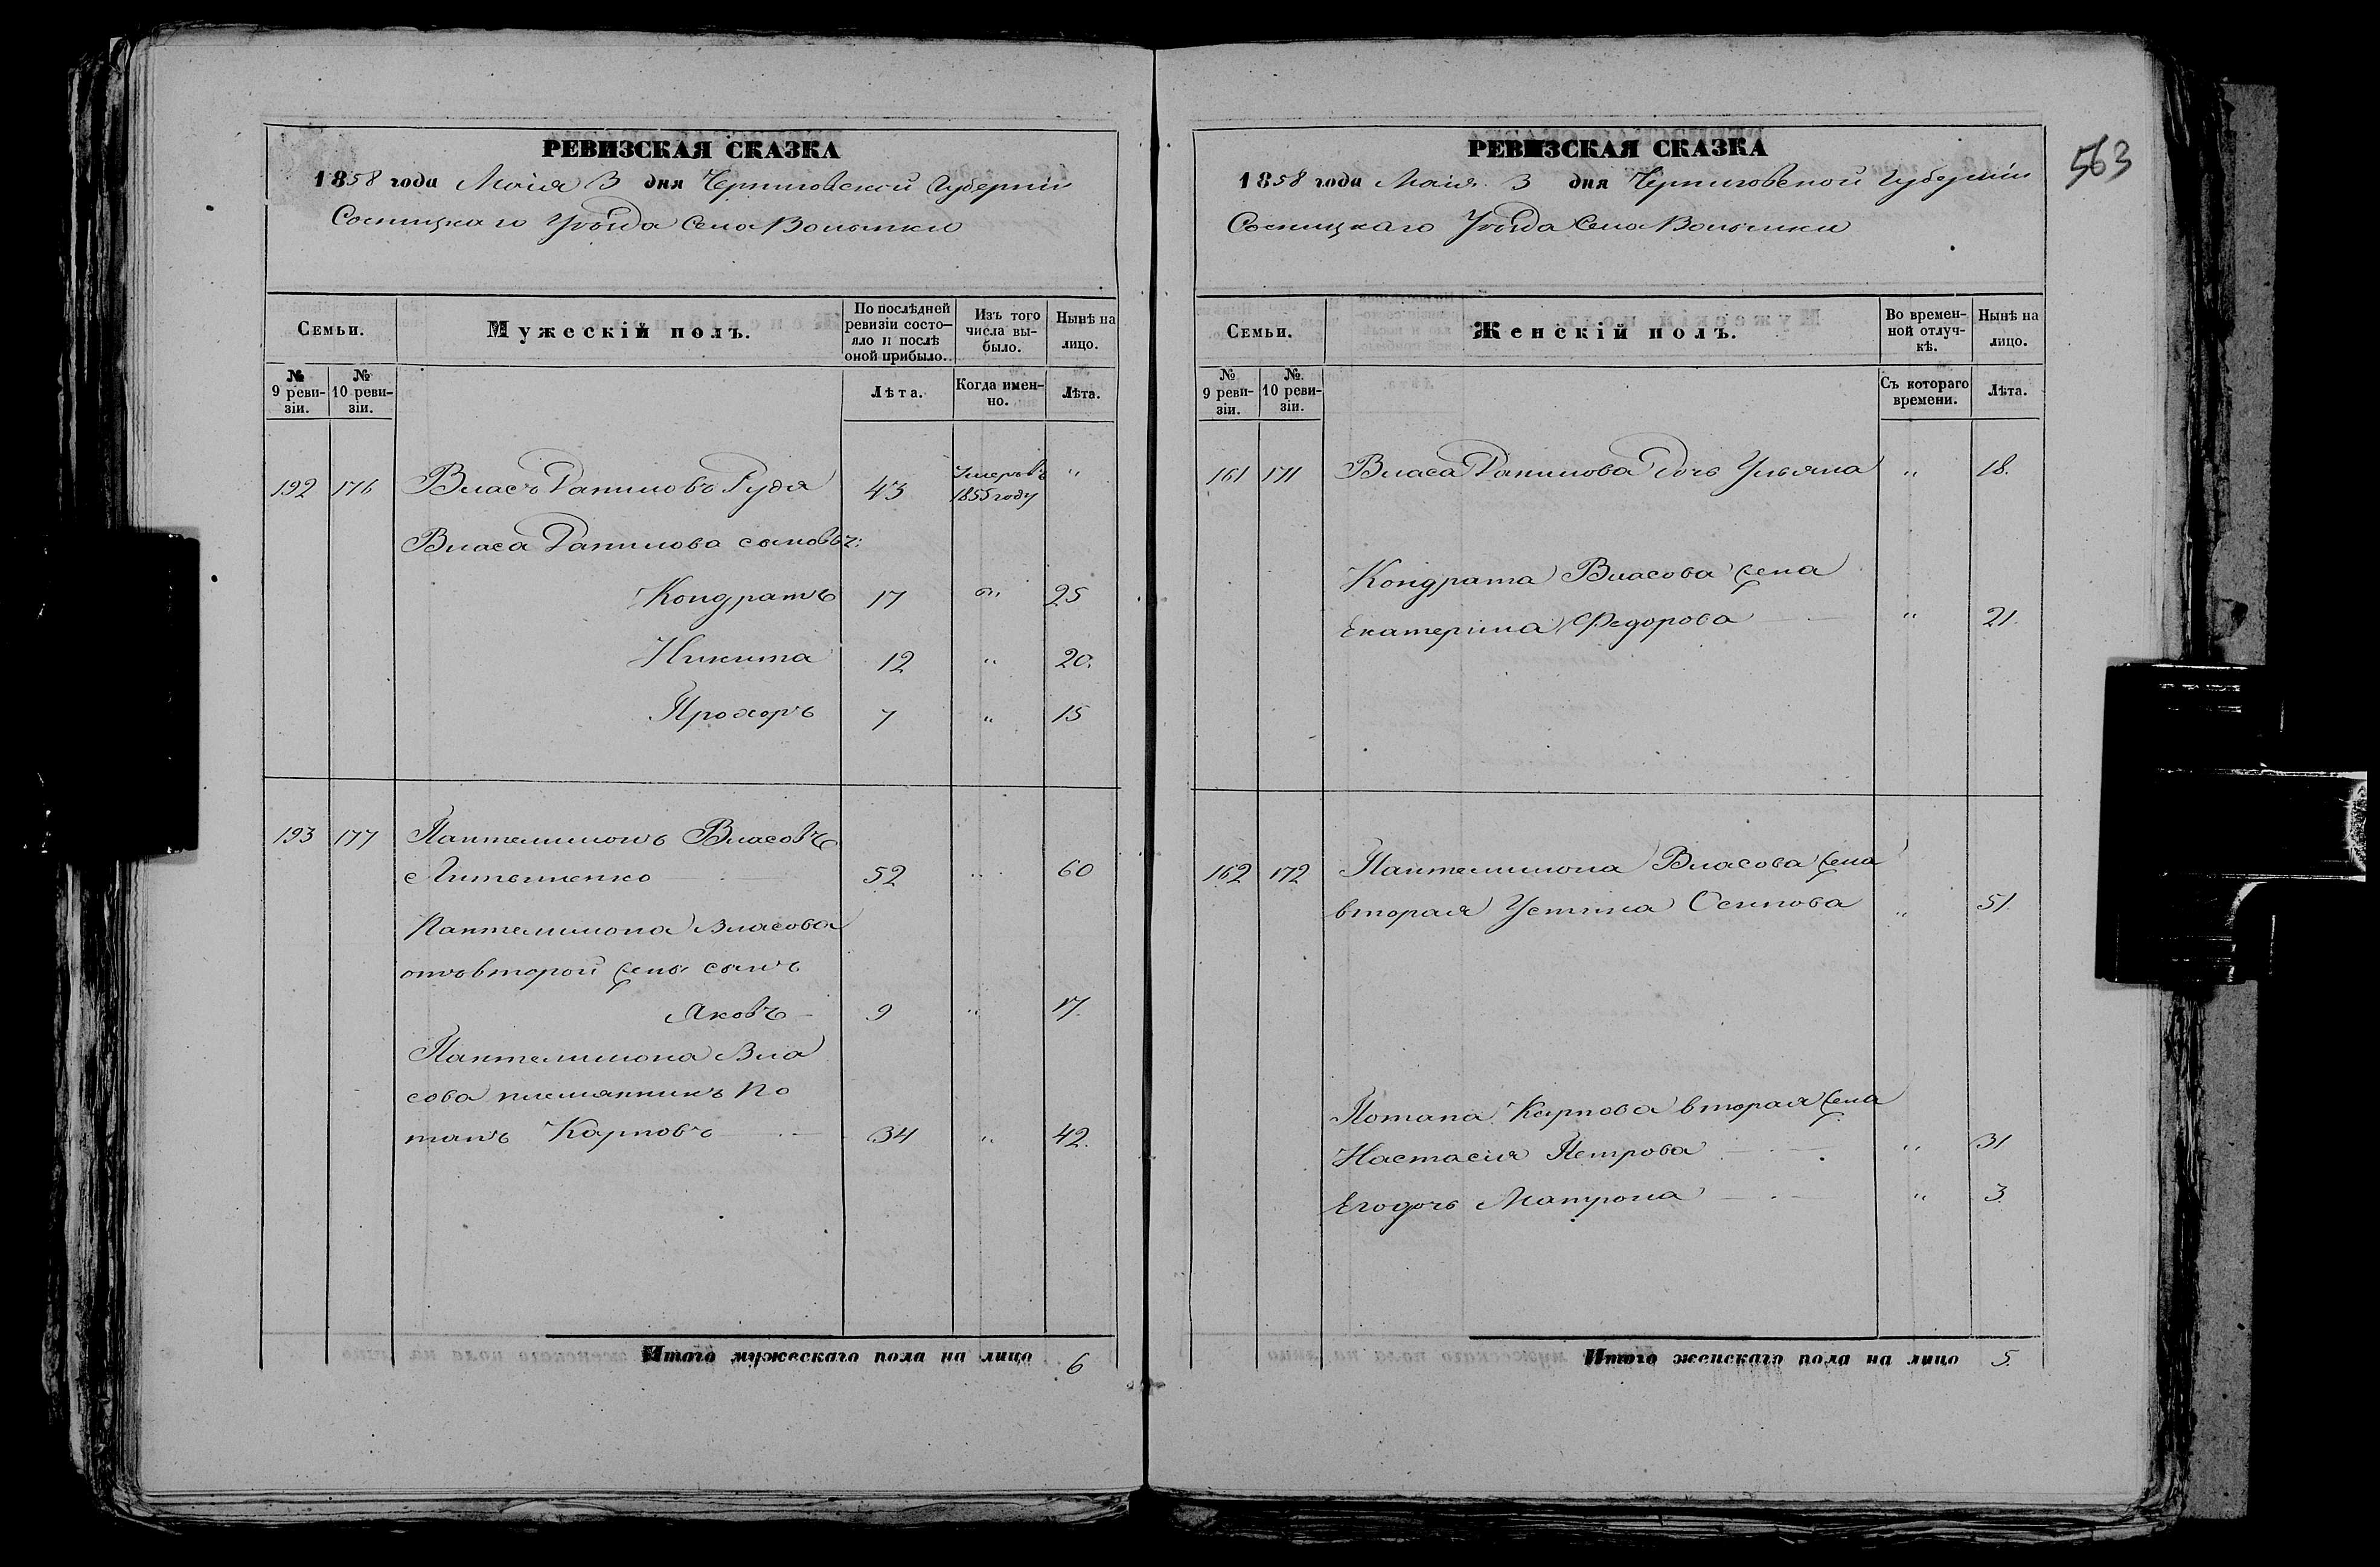 РЕВИЗСКАЯ СКАЗКА
1858 года Маія 3 дня Черниговской Губерніи
Сосницкаго Уѣзда Села Волынки
Семьи.
Мужескій полъ.
По послѣдней ревизіи состо-
яло и послѣ
оной прибыло.
Изъ того
числа вы-
было.
Нынѣ на
лицо.
№
9 реви-
зіи.
№
10 реви-
зіи.
Лѣта.
Когда имен-
но.
Лѣта.
192 176 Власъ Даниловъ Рудя 43 Умеръ въ 1855 году "
Власа Данилова сыновья:
Кондратъ 17 " 25
Никита 12 " 20.
Прохоръ 7 " 15
193 177 Пантелимонъ Власовъ
Литвиненко 52 " 60
Пантелимона Власова
отъ второй жены сынъ
Яковъ 9 " 17.
Пантелимона Вла
сова племянникъ По
тапъ Карповъ 34 " 42.
Итого мужескаго пола на лицо 6
563
РЕВИЗСКАЯ СКАЗКА
1858 года Маія 3 дня Черниговской Губерніи
Сосницкаго Уѣзда Села Волынки
Семьи.
Женскій полъ.
Во времен-
ной отлуч-
кѣ.
Нынѣ на
лицо.
№
9 реви-
зіи.
№
10 реви-
зіи.
Съ котораго
времени.
Лѣта.
161 171 Власа Данилова дочь Ульяна " 18.
Кондрата Власова жена
Екатерина Федорова " 21.
162 172 Пантелимона Власова жена
вторая Устина Осипова " 51.
Потапа Карпова вторая жена
Настасия Петрова " 31
Его дочь Матрона " 3
Итого женскаго пола на лицо 5.